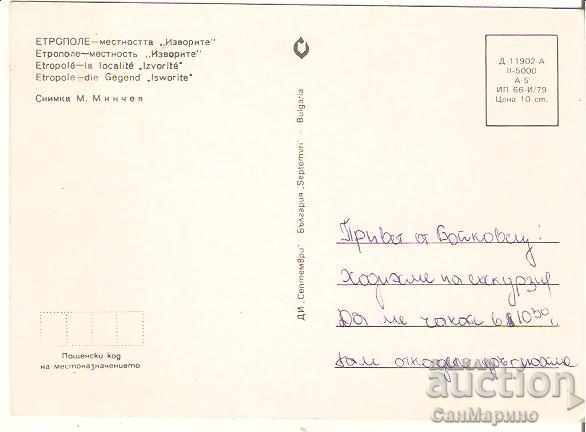 ЕТРОПОЛЕ—местността „Изворите"
Етрополе—местность „Изворите"
Etropolé—la localité „Izvorité"
Etropole—die Gegend „Isworite"
Снимка М. Минчев
ДИ „Септември" — България „Septemvri" — Bulgaria
Д-11902-А
II-5000
А-5
ИП 66-И/79
Цена 10 ст.
Привет от Бойковец!
Ходихме на екскурзия
Да ме чакат 6 10³⁰
към
Пощенски код
на местоназначението
auction
СанМарино